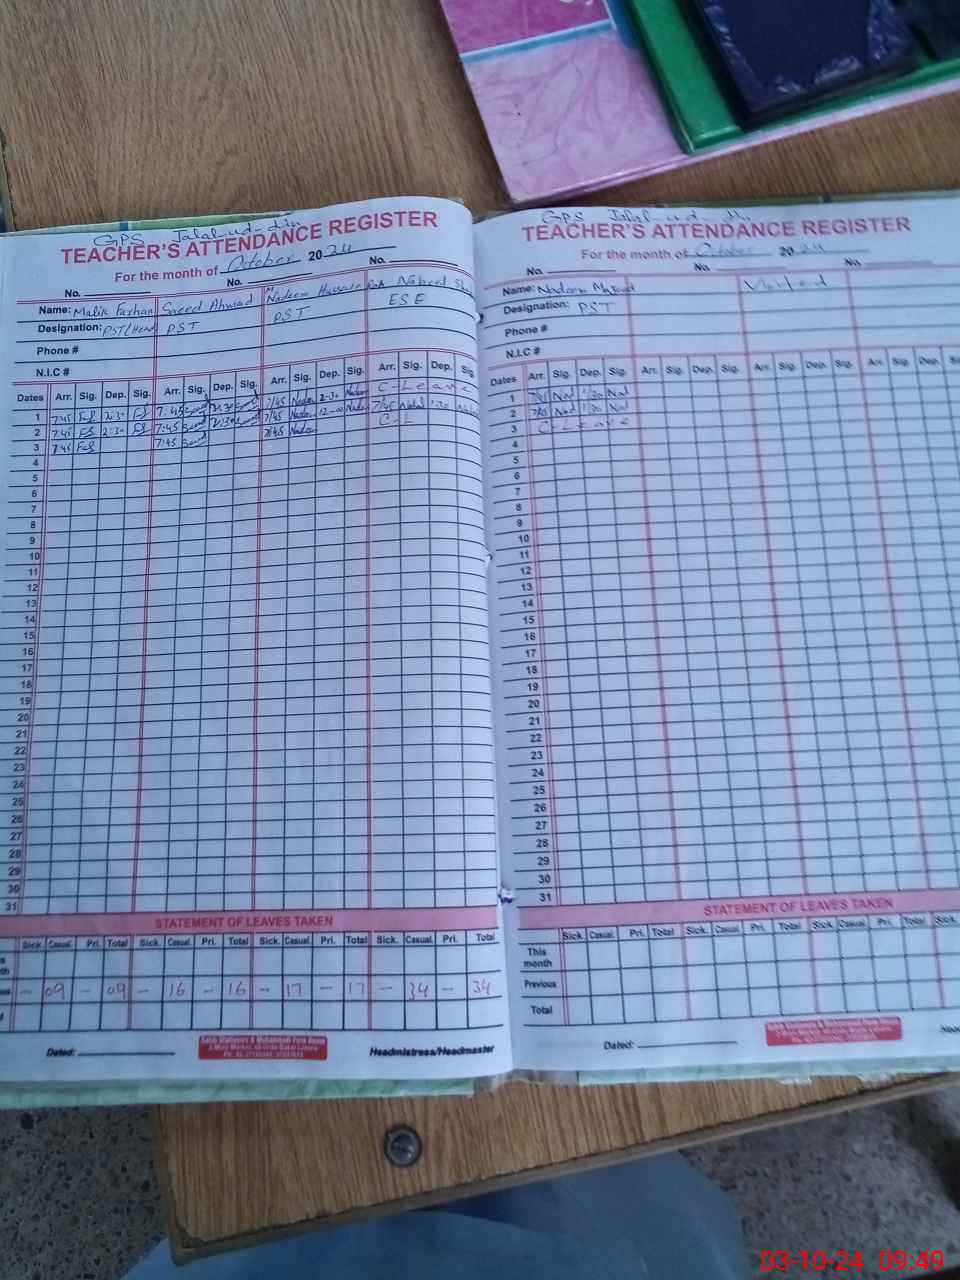 GPS Jalal-ud-din
TEACHER'S ATTENDANCE REGISTER
For the month of October 2024
No. No. No.
Name: Malik Farhan Saeed Ahmad M Nadeem Hussain Naheed
Designation: PST/Head PST PST ESE
Phone #
N.I.C #
Dates Arr. Sig. Dep. Sig. Arr. Sig. Dep. Sig. Arr. Sig. Dep. Sig. Arr. Sig. Dep. Sig.
1 7:45 2:30 7:45 2:30 7:45 Nadeem 2:30 Nadeem C-Leave
2 7:45 2:30 7:45 2:30 7:45 Nadeem 12:00 Nadeem 7:45 1:30
3 7:45 7:45 7:45 Nadeem C-L
4
5
6
7
8
9
10
11
12
13
14
15
16
17
18
19
20
21
22
23
24
25
26
27
28
29
30
31
STATEMENT OF LEAVES TAKEN
Sick. Casual Pri. Total Sick. Casual Pri. Total Sick. Casual Pri. Total Sick. Casual Pri. Total
- 09 - 09 - 16 - 16 - 17 - 17 - 34 - 34
Dated: Headmistress/Headmaster
GPS Jalal-ud-din
TEACHER'S ATTENDANCE REGISTER
For the month of October 2024
No. No. No.
Name: Nadeem
Designation: PST
Phone #
N.I.C #
Dates Arr. Sig. Dep. Sig. Arr. Sig. Dep. Sig. Arr. Sig. Dep. Sig. Arr. Sig. Dep.
1 7:45 Nad 1:30 Nad
2 7:45 Nad 1:30 Nad
3 C-Leave
4
5
6
7
8
9
10
11
12
13
14
15
16
17
18
19
20
21
22
23
24
25
26
27
28
29
30
31
STATEMENT OF LEAVES TAKEN
Sick. Casual Pri. Total Sick. Casual Pri. Total Sick. Casual Pri. Total Sick.
This month
Previous
Total
Dated:
03-10-24 09:49